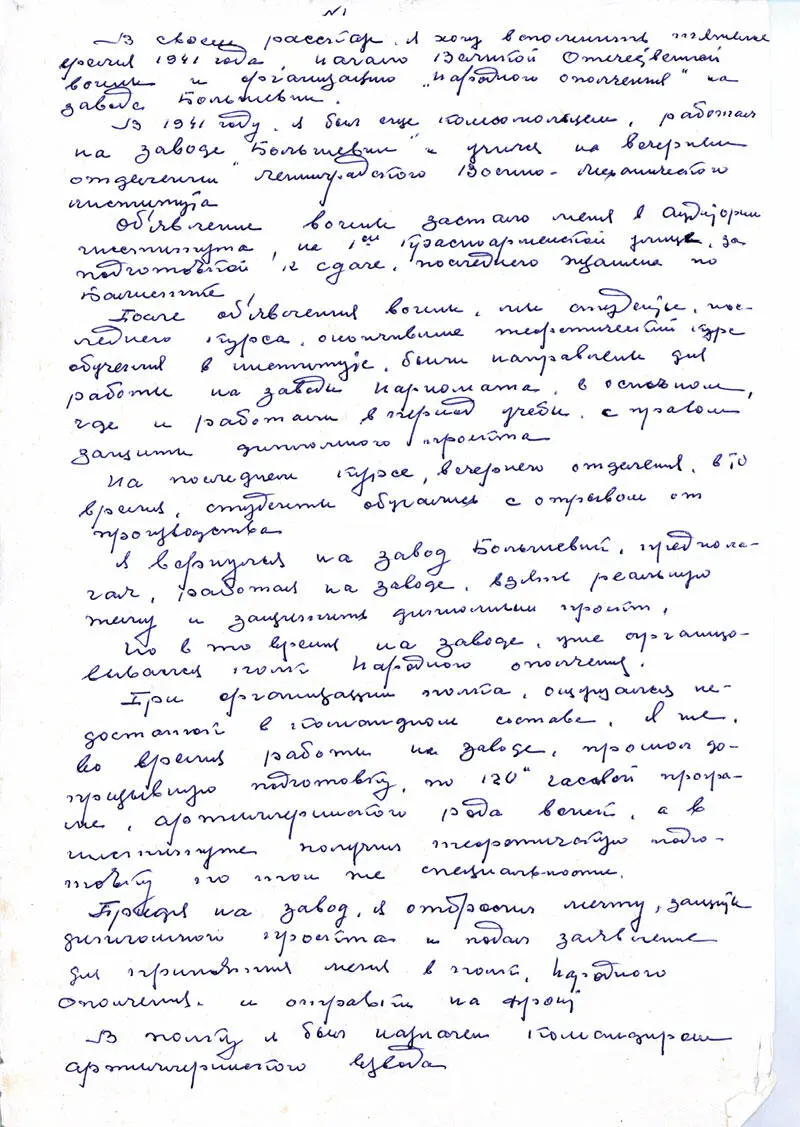 №1
В своем рассказе я хочу вспомнить тяжелые
время 1941 года, начало Великой Отечественной
войны и организацию „Народного ополчения" на
заводе Большевик.
В 1941 году, я был еще комсомольцем, работал
на заводе "Большевик" и учился на вечернем
отделении Ленинградского Военно-Механического
института
Объявление войны застало меня в аудитории
института, на 1ой Красноармейской улице, за
подготовкой к сдаче, последнего экзамена по
баллистике,
После объявления войны, мы студенты, пос-
леднего курса, окончившие теоретический курс
обучения в институте, были направлены для
работы на заводы Наркомата, в основном,
где и работали в период учебы, с правом
защиты дипломного проекта
На последнем курсе, вечернего отделения, в то
время, студенты обучались с отрывом от
производства
Я вернулся на завод Большевик, предпола-
гая, работая на заводе, взять реальную
тему и защитить дипломный проект,
Но в то время на заводе, уже организо-
вывался полк Народного ополчения.
При организации полка, ощущался не-
достаток в командном составе, Я же,
во время работы на заводе, прошел до-
призывную подготовку, по 120" часовой програ-
ме, артиллерийского рода войск, а в
институте получил теоретическую подго-
товку по той же специальности.
Придя на завод, я отбросил мечту, защиты
дипломного проекта и подал заявление
для принятия меня в полк, Народного
Ополчения. и отправки на фронт
В полку я был назначен Командиром
артиллерийского взвода